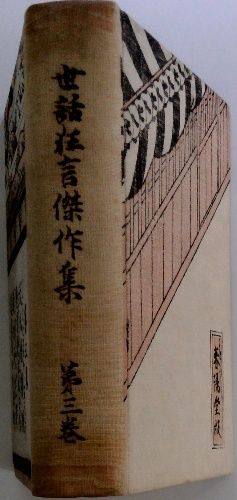 世話狂言傑作集
第三巻
春陽堂版